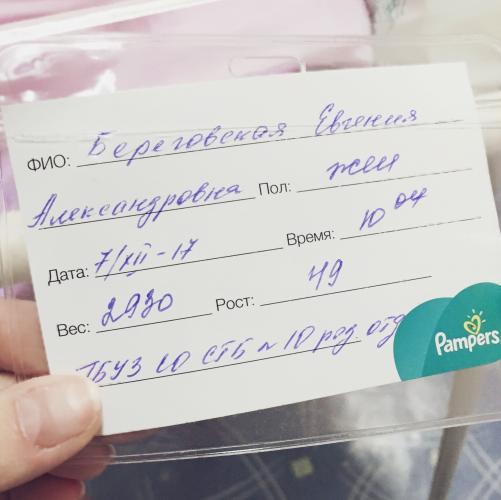 ФИО: Береговская Евгения
Александровна Пол: жен
Дата: 7/XII-17 Время: 10 04
Вес: 2930 Рост: 49
ГБУЗ СО СГБ N 10 род отд
Pampers